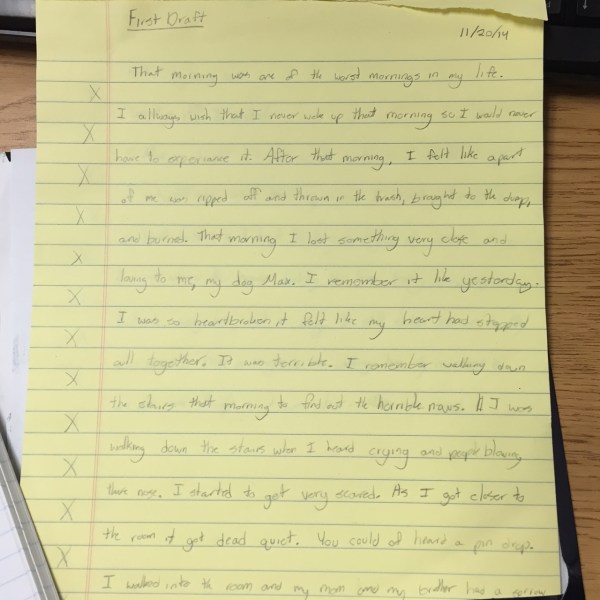 First Draft
11/20/14
That morning was one of the worst mornings in my life.
X
I allways wish that I never woke up that morning so I would never
X
have to experiance it. After that morning, I felt like apart
X
of me was ripped off and thrown in the trash, brought to the dump,
X
and burned. That morning I lost something very close and
X
loving to me, my dog Max. I remember it like yesterday.
X
I was so heartbroken it felt like my heart had stopped
X
all together. It was terrible. I remember walking down
X
the stairs that morning to find out the horrible news. I was
X
walking down the stairs when I heard crying and people blowing
X
there nose. I started to get very scared. As I got closer to
X
the room it got dead quiet. You could of heard a pin drop.
X
I walked into the room and my mom and my brother had a sorrow